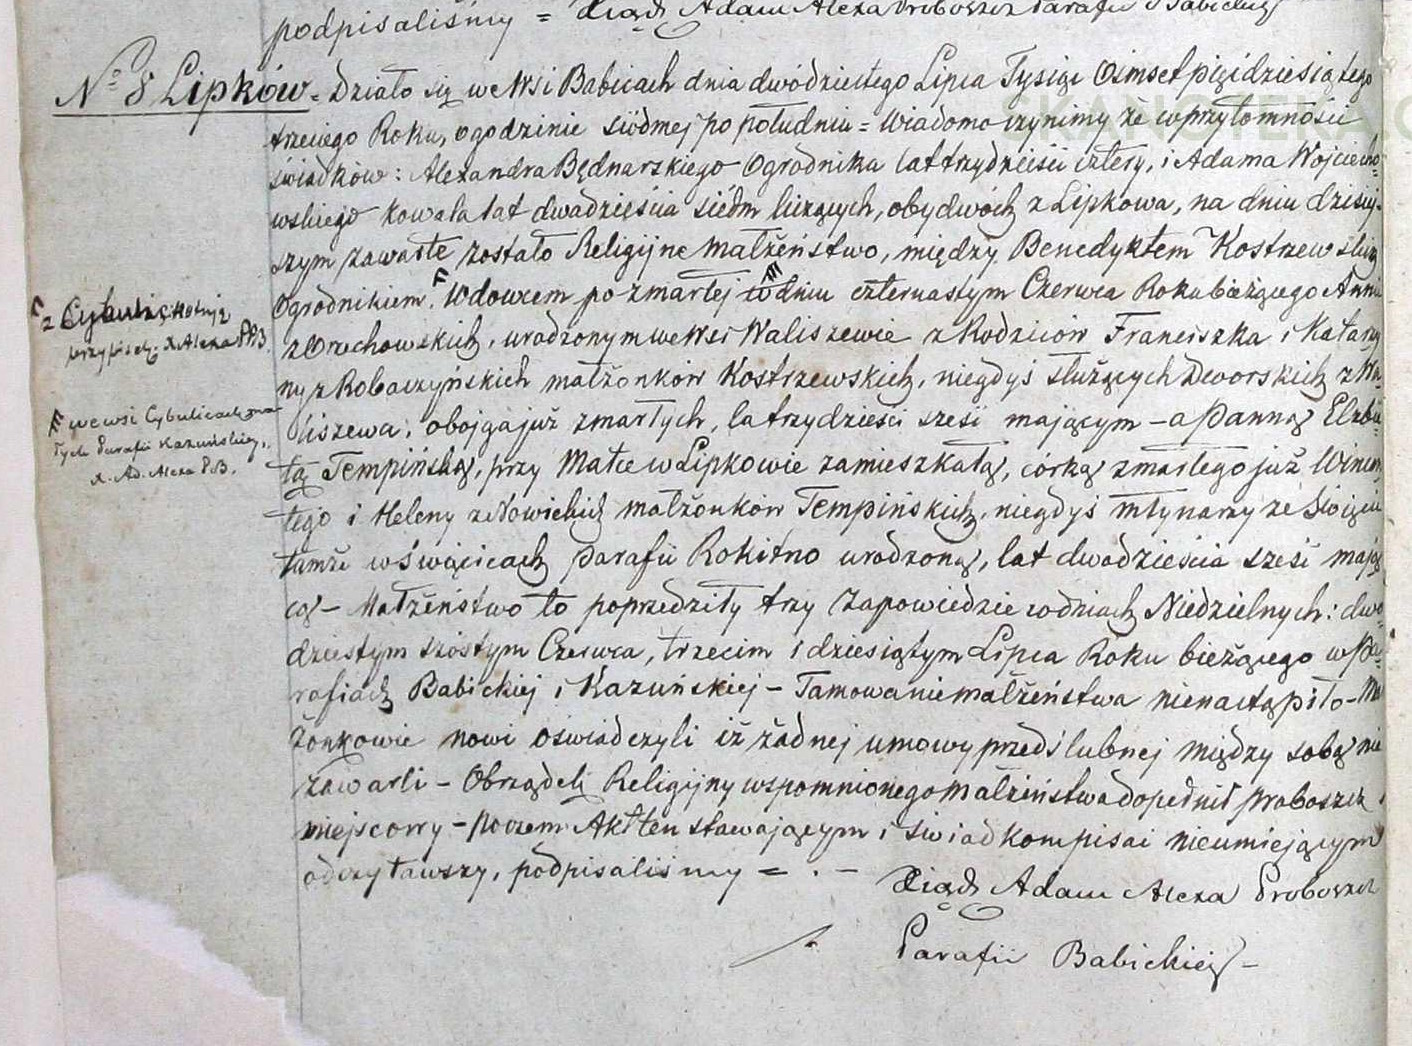 podpisaliśmy = Xiądz Adam Alexa Proboszcz Parafii Babickiej
N<sup>o</sup> 8 Lipków. Działo się we Wsi Babicach dnia dwódziestego Lipca Tysiąc Ośmset pięćdziesiątego
trzeciego Roku, o godzinie siódmej po południu = Wiadomo czynimy że w przytomności
świadków: Alexandra Będnarskiego Ogrodnika lat trzydzieści cztery, i Adama Wojciecho=
wskiego kowala lat dwadzieścia siedm liczących, obydwóch z Lipkowa, na dniu dzisiej=
szym zawarte zostało Religijne Małżeństwo, między Benedyktem Kostrzewskim
Ogrodnikiem, Wdowcem po zmarłej w dniu czternastym Czerwca Roku bieżącego Annie
z Orzechowskich, urodzonym we Wsi Waliszewie z Rodziców Franciszka i Katarzy
ny z Robaczyńskich małżonków Kostrzewskich, niegdyś służących Dworskich z Wa
liszewa, obojga już zmarłych, la trzydzieści sześć mającym – a Panną Elżbie=
tą Tempińską, przy Matce w Lipkowie zamieszkałą, córką zmarłego już Wincen
tego i Heleny z Nowickich małżonków Tempińskich, niegdyś młynarzy ze Święcic
tamże w Święcicach Parafii Rokitno urodzoną, lat dwadzieścia sześć mają
cą – Małżeństwo to poprzedziły trzy Zapowiedzie w dniach Niedzielnych: dwu=
dziestym szóstym Czerwca, trzecim i dziesiątym Lipca Roku bieżącego w Pa=
rafiach Babickiej i Kazuńskiej – Tamowanie małżeństwa nienastąpiło – Mał
żonkowie nowi oświadczyli iż żadnej umowy przedślubnej między sobą nie
zawarli – Obrządek Religijny wspomnionego Małżeństwa dopełnił Proboszcz
miejscowy – poczem Akt ten stawającym i świadkom pisać nieumiejącym
odczytawszy, podpisaliśmy = . – Xiądz Adam Alexa Proboszcz
Parafii Babickiej –
przypisek. X. Alexa P.B.
we wsi Cybulicach zma
łych Parafii Kazuńskiej,
x. Ad. Alexa P.B.